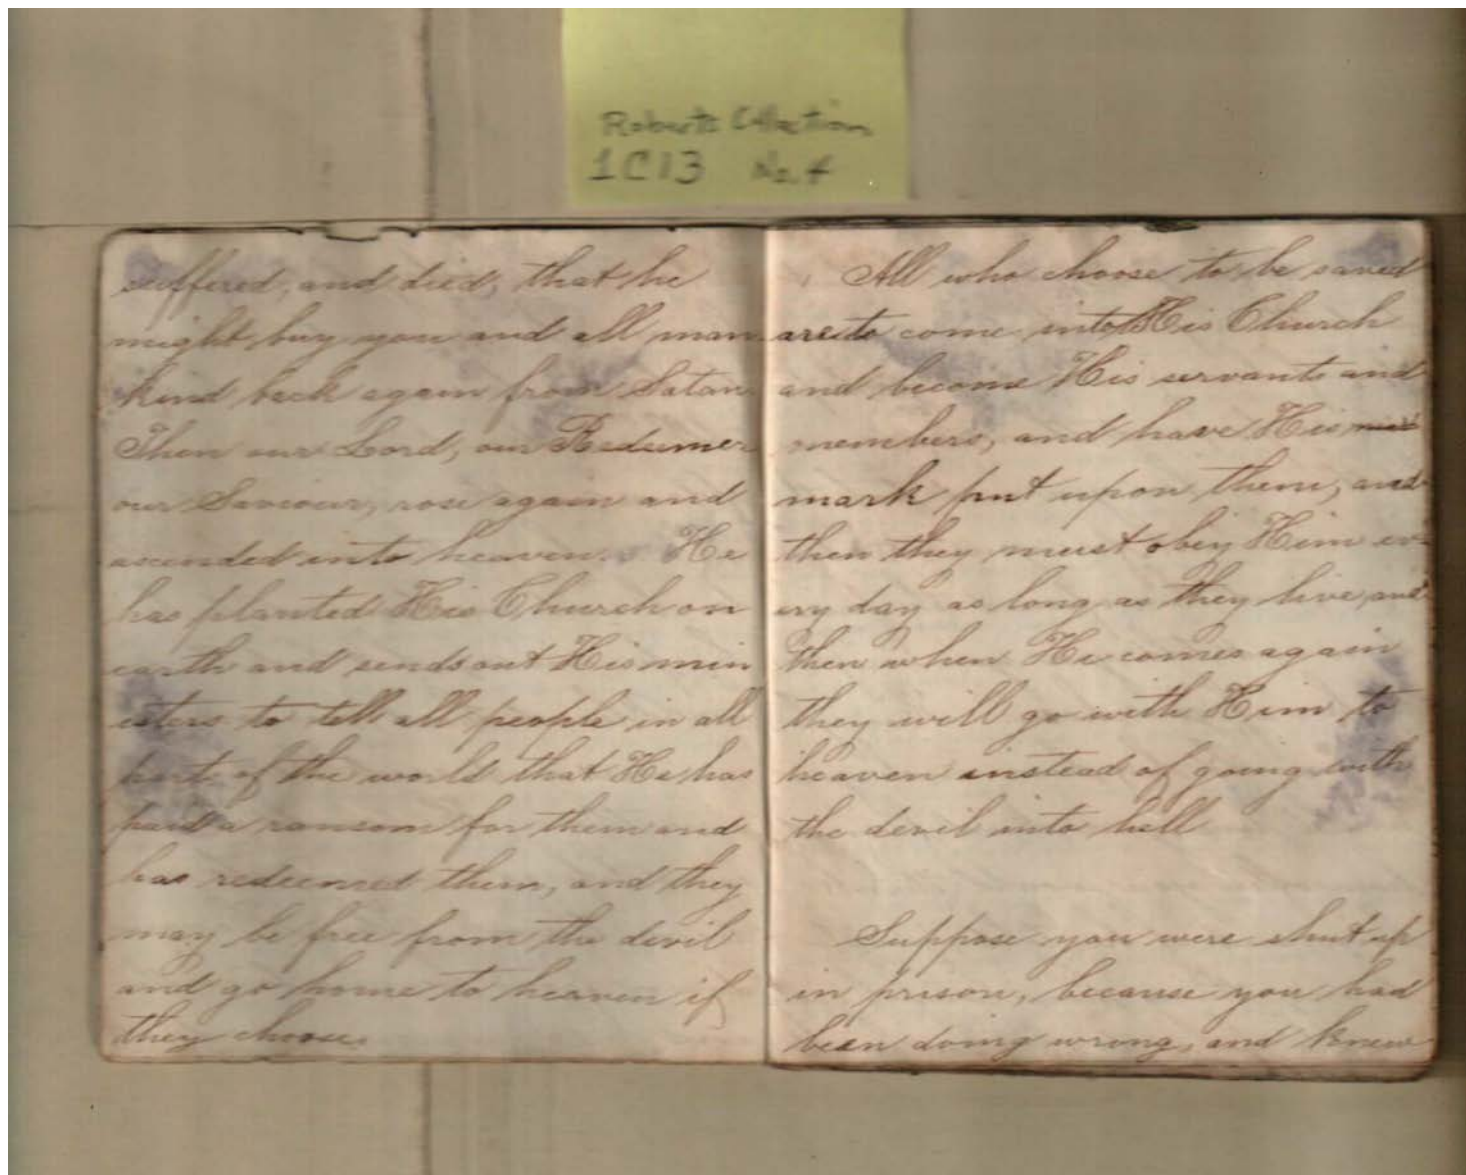 Roberts Collection
1C13 No. 4
suffered, and died, that he
might buy you and all man
kind back again from Satan
Then our Lord, our Redeemer
our Saviour, rose again and
ascended into heaven. He
has planted His Church on
earth and sends out His min
isters to tell all people in all
parts of the world that He has
paid a ransom for them and
has redeemed them, and they
may be free from the devil
and go home to heaven if
they choose.
All who choose to be saved
are to come into His Church
and become His servants and
members, and have His
mark put upon them, and
then they must obey Him ev-
ery day as long as they live, and
then when He comes again
they will go with Him to
heaven instead of going with
the devil into hell
Suppose you were shut up
in prison, because you had
been doing wrong, and knew